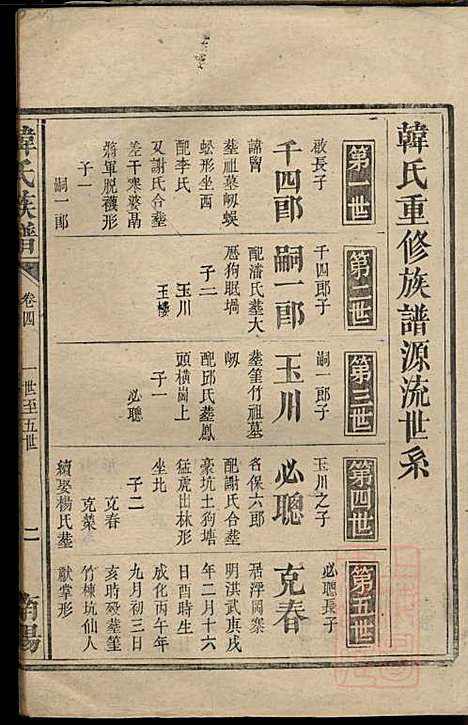 韓氏重修族譜源流世系
第一世
啟長子
千四郎
諱罾
葬祖墓㘭蜈
蚣形坐西
配李氏
又謝氏合葬
差干寒婆凸
將軍脫襪形
子一
嗣一郎
第二世
千四郎子
嗣一郎
配潘氏葬大
曆狗眠堝
子二
玉川
玉樓
第三世
嗣一郎子
玉川
葬篁竹祖墓
㘭
配邱氏葬鳳
頭橫崗上
子一
必聰
第四世
玉川之子
必聰
名保六郎
配謝氏合葬
豪坑土狗塘
猛虎出林形
坐北
子二
克春
克菜
續娶楊氏葬
第五世
必聰長子
克春
居浮岡寨
明洪武庚戌
年二月十六
日酉時生
成化丙午年
九月初三日
亥時歿葬篁
竹棟坑仙人
獻掌形
韓氏族譜
卷四
一世至五世
二
南陽